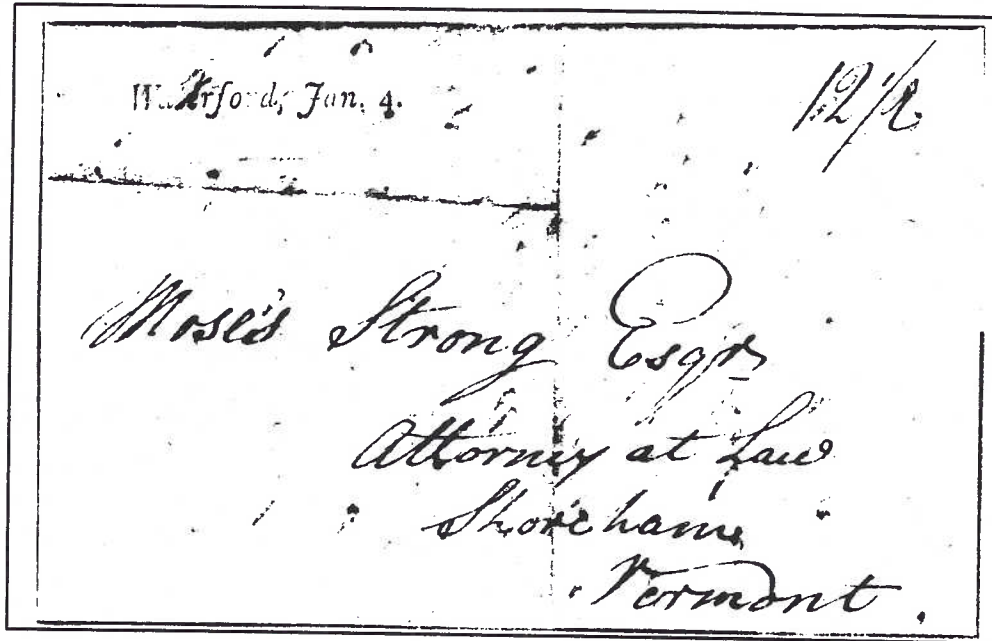 Waterford, Jan. 4.
12 1/2
Moses Strong Esqr
Attorney at Law
Shoreham
Vermont.